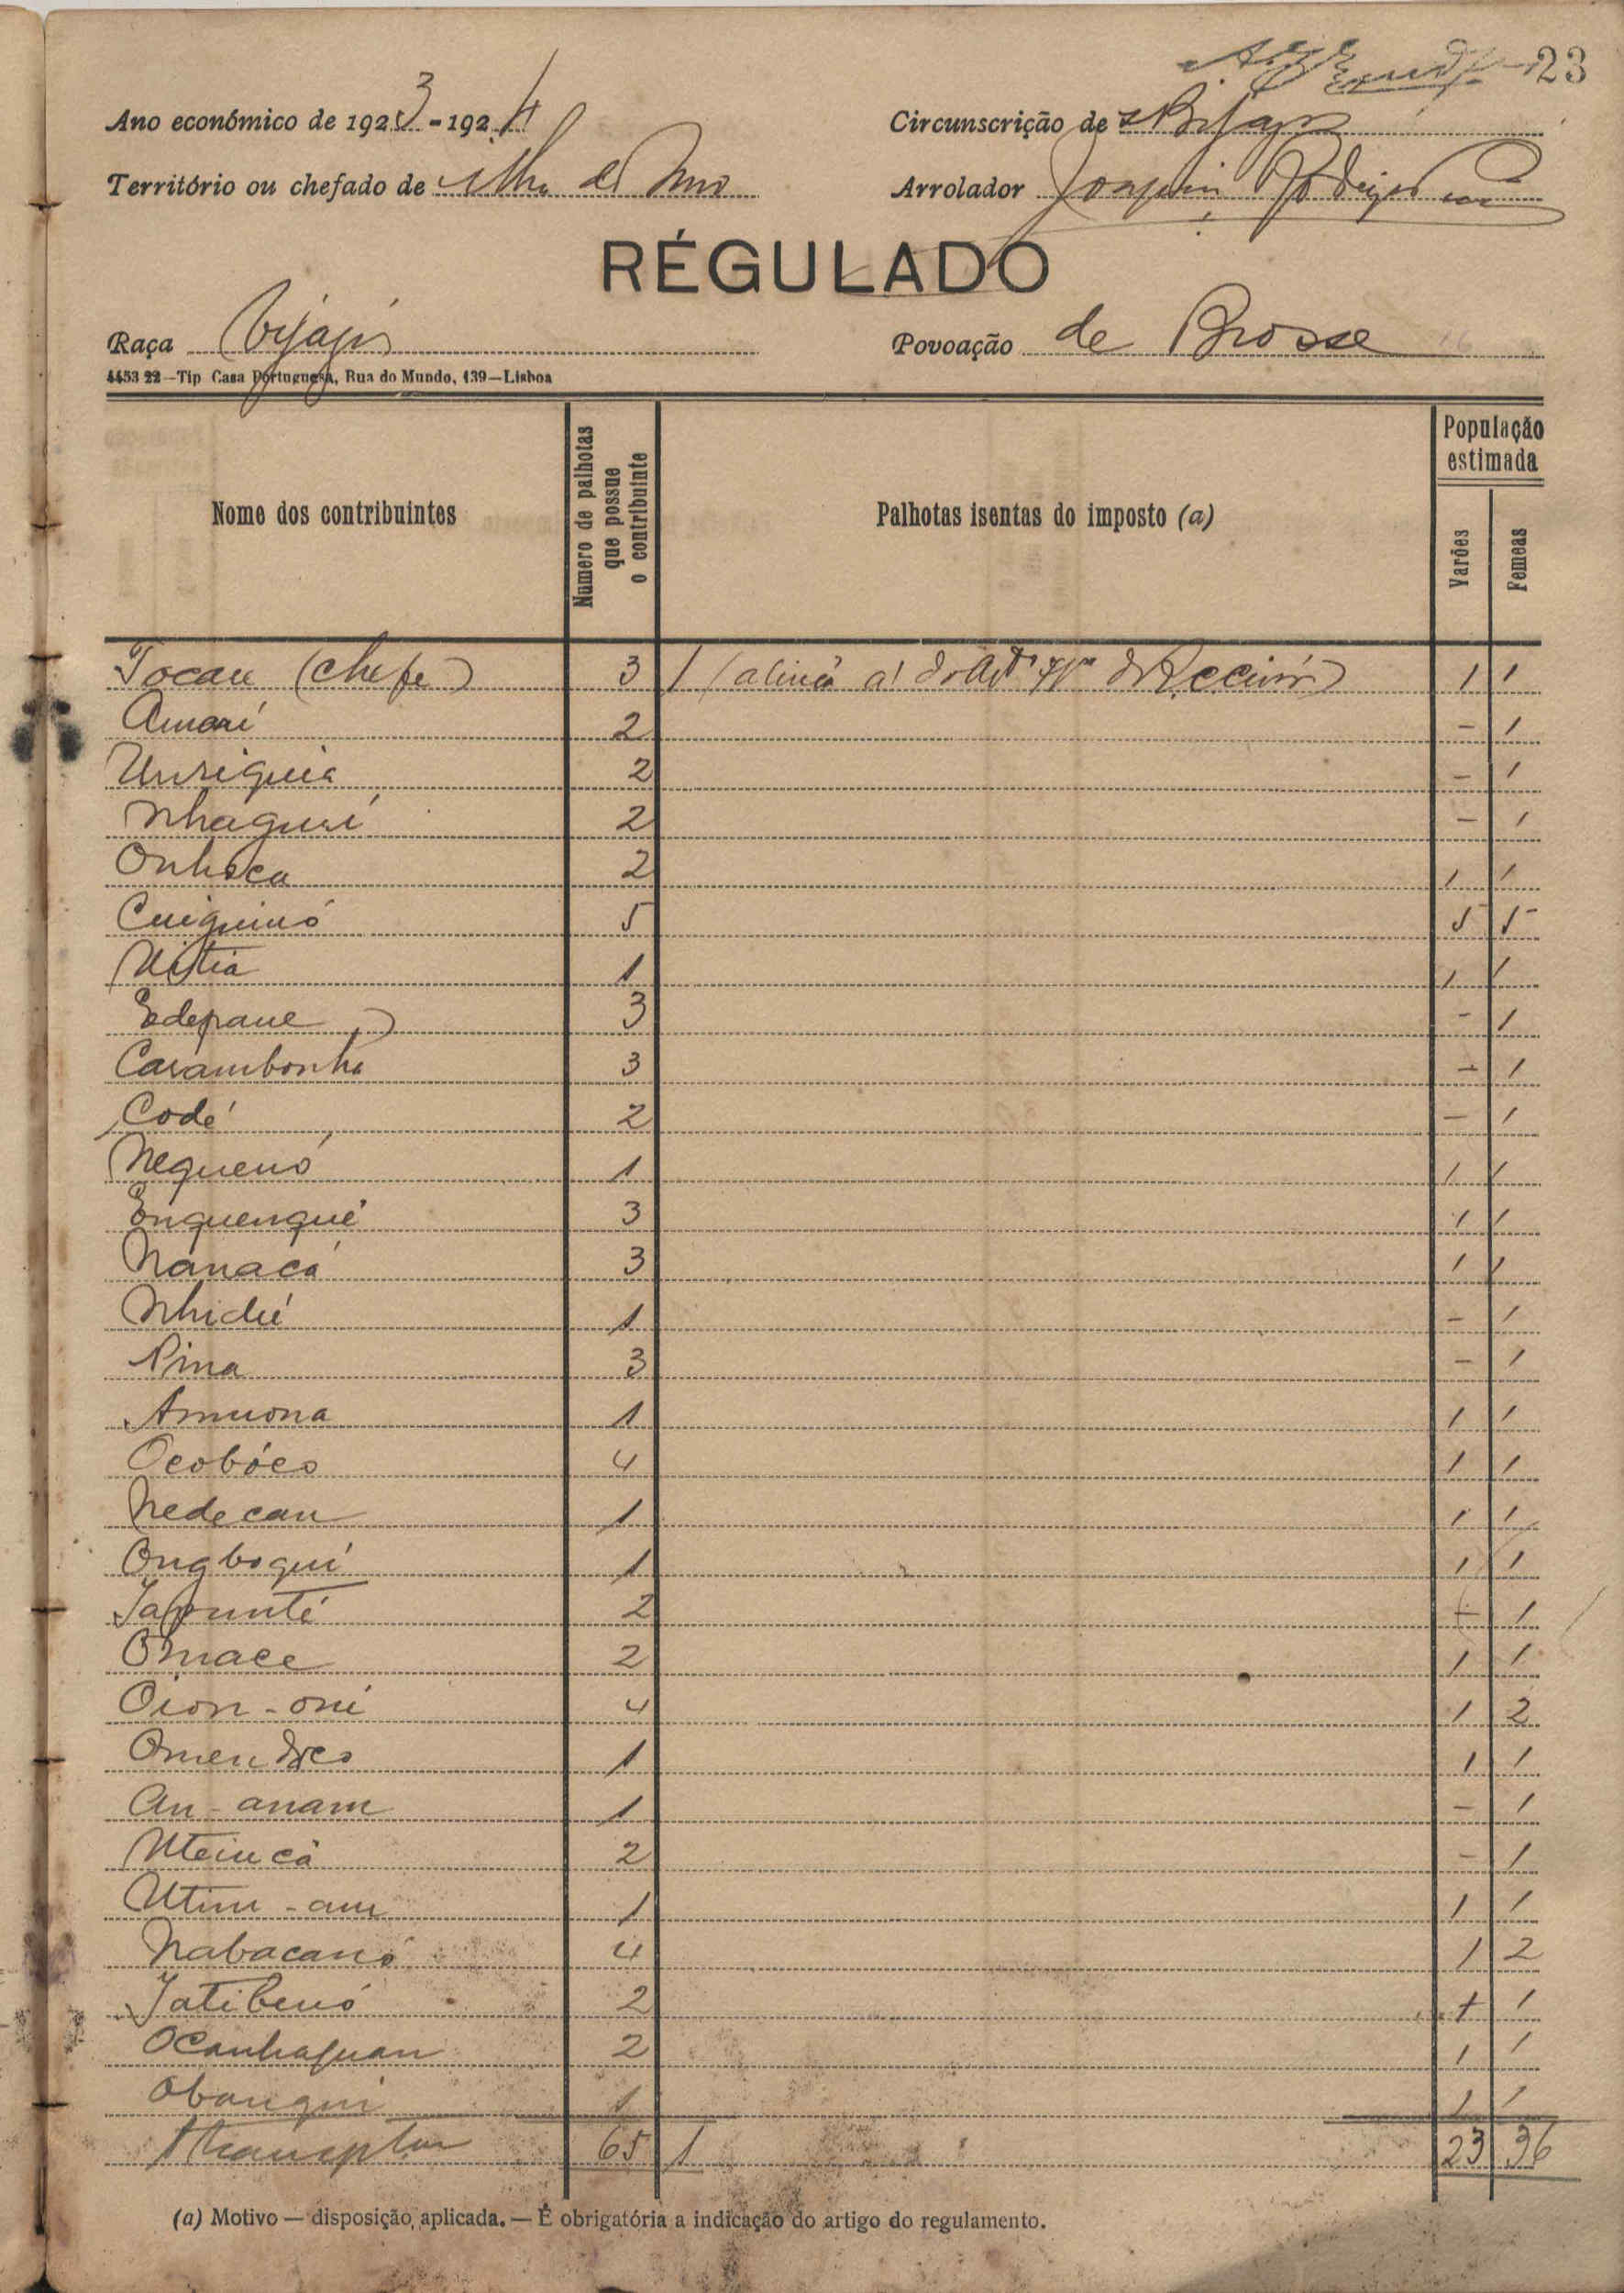 23
Ano económico de 1923-1924
Circunscrição de Bijagoz
Território ou chefado de ilha de Uno
Arrolador Joaquim Rodrigues
RÉGULADO
Raça Bijagós
Povoação de Brosse
4453 22—Tip Casa Portuguesa, Rua do Mundo, 139—Lisboa
Nome dos contribuintes
Numero de palhotas que possue o contribuinte
Palhotas isentas do imposto (a)
População estimada
Varões
Femeas
Tocau (chefe) 3 1 (alinea a) do Artº 1 1
Amoré 2 - 1
Unriguia 2 - 1
Nhaguri 2 - 1
Onhoca 2 1 1
Cuiguinó 5 5 5
Utia 1 1 1
Edepane 3 - 1
Carambonha 3 - 1
Codé 2 - 1
Nequenó 1 1 1
Enquenqué 3 1 1
Nanacá 3 1 1
Nhidié 1 - 1
Pina 3 - 1
Amuona 1 1 1
Ocobóco 4 1 1
Nedecau 1 1 1
Ongboqui 1 1 1
Japunté 2 - 1
Omace 2 1 1
Oion-oni 4 1 2
Omendoco 1 1 1
An-anam 1 - 1
Uteiucá 2 - 1
Utim-am 1 1 1
Nabacanó 4 1 2
Jatibenó 2 1 1
Ocanhapuan 2 1 1
Obanqui 1 1 1
Transporte 65 1 23 36
(a) Motivo — disposição, aplicada. — É obrigatória a indicação do artigo do regulamento.